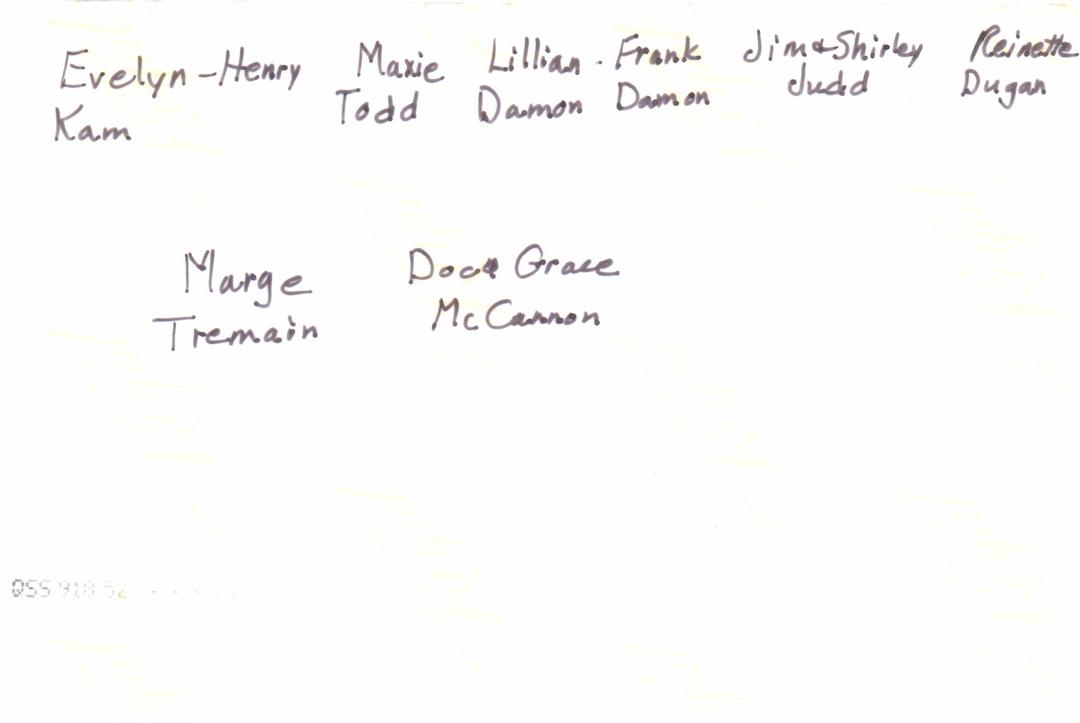 Evelyn - Henry Maxie Lillian - Frank Jim & Shirley Reinette
Kam Todd Damon Damon Judd Dugan
Marge Doc & Grace
Tremain McCannon
QSS 910 52